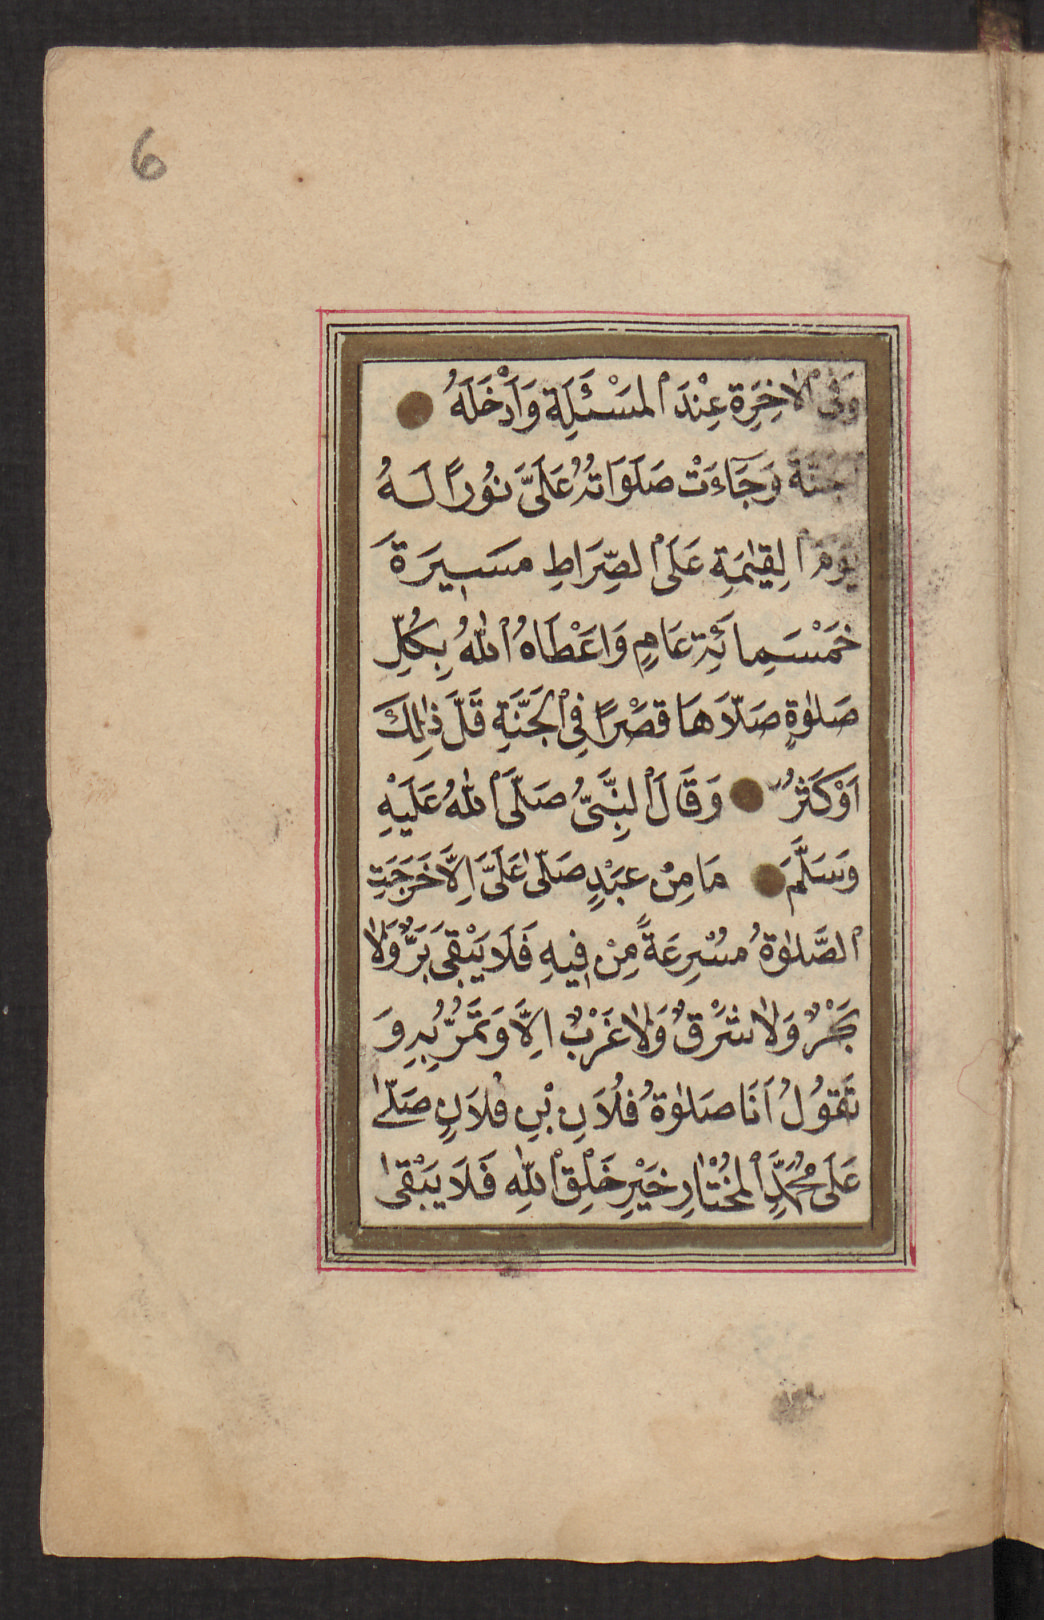 6
وَفِي الْاٰخِرَةِ عِنْدَ الْمَسْئَلَةِ وَاَدْخَلَهُ
الْجَنَّةَ وَجَآءَتْ صَلَوَاتُهُ عَلَىَّ نُورًا لَهُ
يَوْمَ الْقِيٰمَةِ عَلَى الصِّرَاطِ مَسِيرَةَ
خَمْسَمِائَةِ عَامٍ وَاَعْطَاهُ اللهُ بِكُلِّ
صَلٰوةٍ صَلَّاهَا قَصْرًا فِي الْجَنَّةِ قَلَّ ذٰلِكَ
اَوْ كَثُرَ وَقَالَ النَّبِىُّ صَلَّى اللهُ عَلَيْهِ
وَسَلَّمَ مَا مِنْ عَبْدٍ صَلّٰى عَلَىَّ اِلَّا خَرَجَتِ
الصَّلٰوةُ مُسْرِعَةً مِنْ فِيهِ فَلَا يَبْقَى بَرٌّ وَلَا
بَحْرٌ وَلَا شَرْقٌ وَلَا غَرْبٌ اِلَّا وَتَمُرُّ بِهِ وَ
تَقُولُ اَنَا صَلٰوةُ فُلَانِ بْنِ فُلَانٍ صَلّٰى
عَلَى مُحَمَّدٍ الْمُخْتَارِ خَيْرِ خَلْقِ اللهِ فَلَا يَبْقٰى